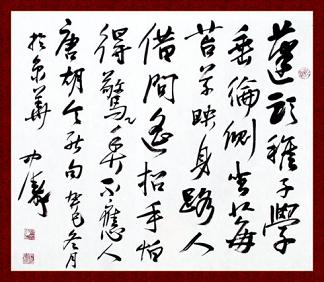 蓬头稚子學
垂綸側坐莓
苔草映身路人
借問遙招手怕
得驚魚不應人
唐胡令能句癸巳冬月
於京華